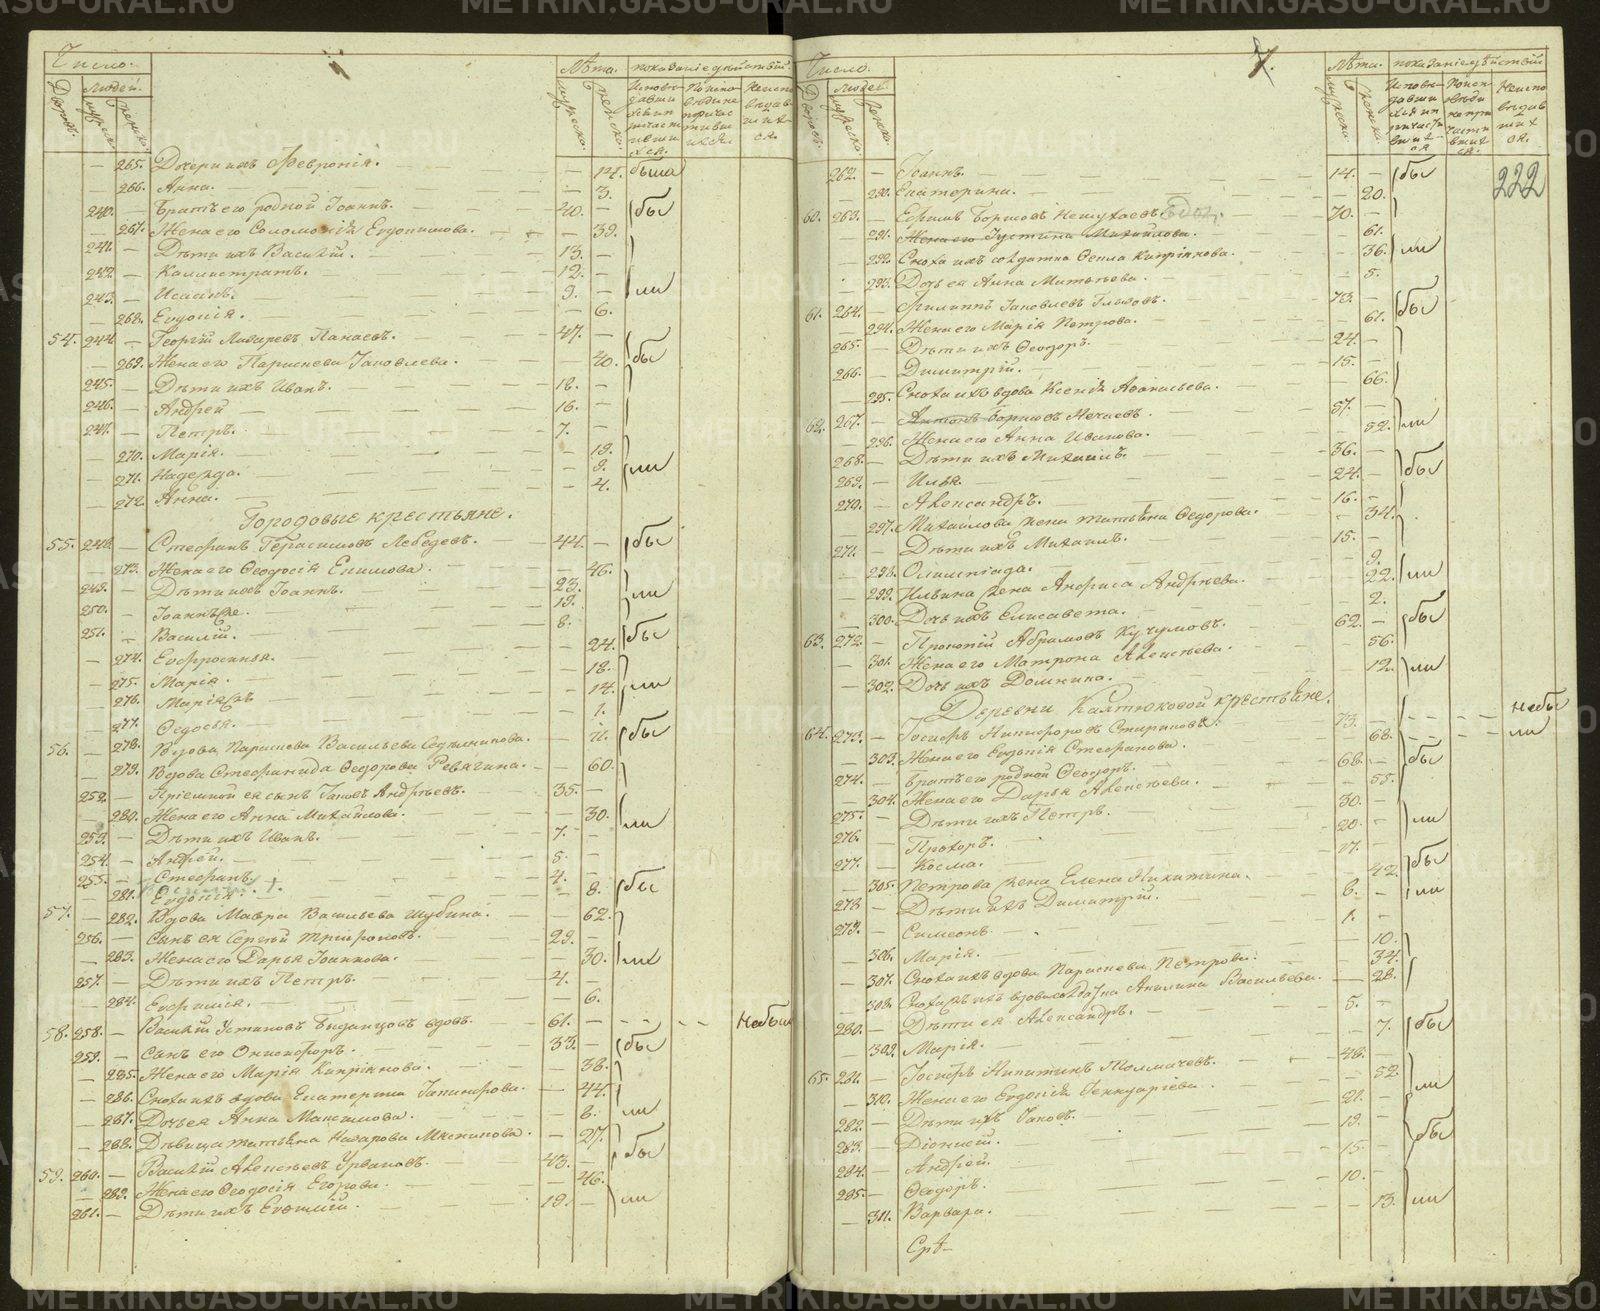 Число.
Дворовъ.
Людей.
мужеска.
женска.
Лѣта.
мужеска.
женска.
показаніе дѣйствій.
— 265. Дочери ихъ Февронія. — 14. была
— 266. Анна. — 3.
240. — Братъ его родной Іоаннъ. 40. — бы
— 267. Жена его Соломонія Евдокимова. — 39.
241. — Дѣти ихъ Василій. 13. —
242. — Каллистратъ. 12. —
243. — Исаакъ. 9. — ли
— 268. Евдокія. — 6.
54. 244. — Георгій Лазаревъ Панаевъ. 47. —
— 269. Жена его Парискева Іаковлева. — 40. бы
245. — Дѣти ихъ Иванъ. 18. —
246. — Андрей 16. —
247. — Петръ. 7. —
— 270. Марія. — 12.
— 271. Надежда. — 9. ли
— 272. Анна. — 4.
Городовые крестьяне.
55. 248. — Стефанъ Герасимовъ Лебедевъ. 44. — бы
— 273. Жена его Ѳеодосія Екимова. — 46.
249. — Дѣти ихъ Іоаннъ. 23.
250. — Іоаннъ же. 19. ли
251. — Василій. 8.
— 274. Евфросинья. — 24. бы
— 275. Марія. — 18.
— 276. Марія же — 14. ли
— 277. Ѳедосья. — 1.
56. — 278. Вдова Парискева Васильева — бы
— 279. Вдова Стефанида Ѳедорова Ревягина. — 60.
252. — Пріемной ея сынъ Іаковъ Андреевъ. 35. —
— 280. Жена его Анна Михайлова. — 30.
253. — Дѣти ихъ Иванъ. 7. — ли
254. — Андрей. 5. —
255. — Стефанъ 4. —
— 281. Евдокія — 8. бы
57. — 282. Вдова Мавра Васильева Шубина. — 62.
256. — Сынъ ея Сергѣй Трифоновъ. 29. —
— 283. Жена его Дарья Іоаннова. — 30. ли
257. — Дѣти ихъ Петръ. 4. —
— 284. Евфимія. — 6.
58. 258. — Василій Устиновъ вдовъ. 61. — — — Небыли
259. — Сынъ его Онисифоръ. 33. — бы
— 285. Жена его Марія Кипріянова. — 38.
— 286. Сноха ихъ вдова Екатерина — 44.
— 287. Дочь ея Анна Максимова. — 8. ли
— 288. Дѣвица Татьяна Назарова — 27.
59. 260. — Василій Алексѣевъ Урвановъ. 43. — бы
— 289. Жена его Ѳеодосія Егорова. — 46.
261. — Дѣти ихъ Евѳимій. 19. — ли
7.
222
Число.
Дворовъ.
Людей
мужеска.
женска.
Лѣта.
мужеска.
женска.
показаніе дѣйствій
262. — Іоаннъ. 14. — бы
— 290. Екатерина. — 20.
60. 263. — Ефимъ Борисовъ 70. —
— 291. Жена его Іустина Михайлова. — 61.
— 292. Сноха ихъ солдатка Ѳекла Кипріянова. — 36. ли
— 293. Дочь ея Анна Матвѣева. — 5.
61. 264. — Филиппъ Іаковлевъ Глазовъ. 73. —
— 294. Жена его Марія Петрова. — 61. бы
265. — Дѣти ихъ Ѳеодоръ. 24. —
266. — Димитрій. 15. —
— 295. Сноха ихъ вдова Ксенія Аѳанасьева. — 66.
62. 267. — Антонъ Борисовъ Нечаевъ. 57. —
— 296. Жена его Анна Иванова. — 52. ли
268. — Дѣти ихъ Михаилъ. 36. —
269. — Илья. 24. — бы
270. — Александръ. 16. —
— 297. Михайлова жена Татьяна Ѳедорова. — 34.
271. — Дѣти ихъ Михаилъ. 15. —
— 298. Олимпіада. — 9.
— 299. Ильина жена Анфиса Андреева. — 22. ли
— 300. Дочь ихъ Елисавета. — 2.
63. 272. — Прокопій Абрамовъ Кучумовъ. 62. — бы
— 301. Жена его Матрона Алексѣева. — 56.
— 302. Дочь ихъ Домнина. — 12. ли
Деревни Калтюковой крестьяне.
64. 273. — Іосифъ Никифоровъ Спиринъ. 73. — — — — небы
— 303. Жена его Евдокія Стефанова. — 68. — — — ли
274. — Братъ его родной Ѳеодоръ. 68. — бы
— 304. Жена его Дарья Алексѣева. — 55.
275. — Дѣти ихъ Петръ. 30. —
276. — Прохоръ. 20. — ли
277. — Косма. 17. —
— 305. Петрова жена Елена Никитина. — 42. бы
278 — Дѣти ихъ Димитрій. 6. — ли
279. — Симеонъ. 1. —
— 306. Марія. — 10.
— 307. Сноха ихъ вдова Парасковья Петрова. — 34.
— 308. Сноха жъ ихъ вдова солдатка Акилина Васильева. — 28.
280. — Дѣти ея Александръ. 5. —
— 309. Марія. — 7. бы
65. 281. — Іосифъ Никитинъ Толмачевъ. 48. —
— 310. Жена его Евдокія Геннадіева. — 52. ли
282. — Дѣти ихъ Іаковъ. 21. —
283. — Діонисій. 19. —
284. — Андрей. 15. — бы
285. — Ѳеодоръ. 10. —
— 311. Варвара. — 13. ли
METRIKI.GASO-URAL.RU